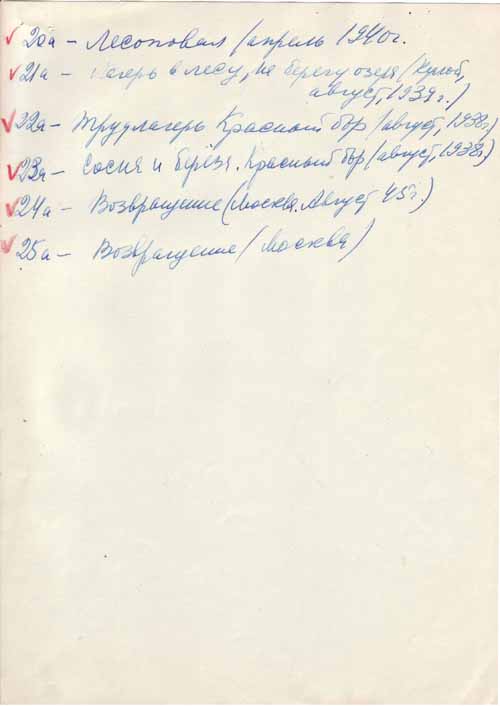 20а – Лесоповал /апрель 1940г.
21а – Лагерь в лесу, на берегу озера (Кулой,
август, 1939г.)
22а – Трудлагерь Красный бор (август, 1938г)
23а – Сосна и берёза. Красный бор (август, 1938г.)
24а – Возвращение (Москва. Август 45г.)
25а – Возвращение (Москва)